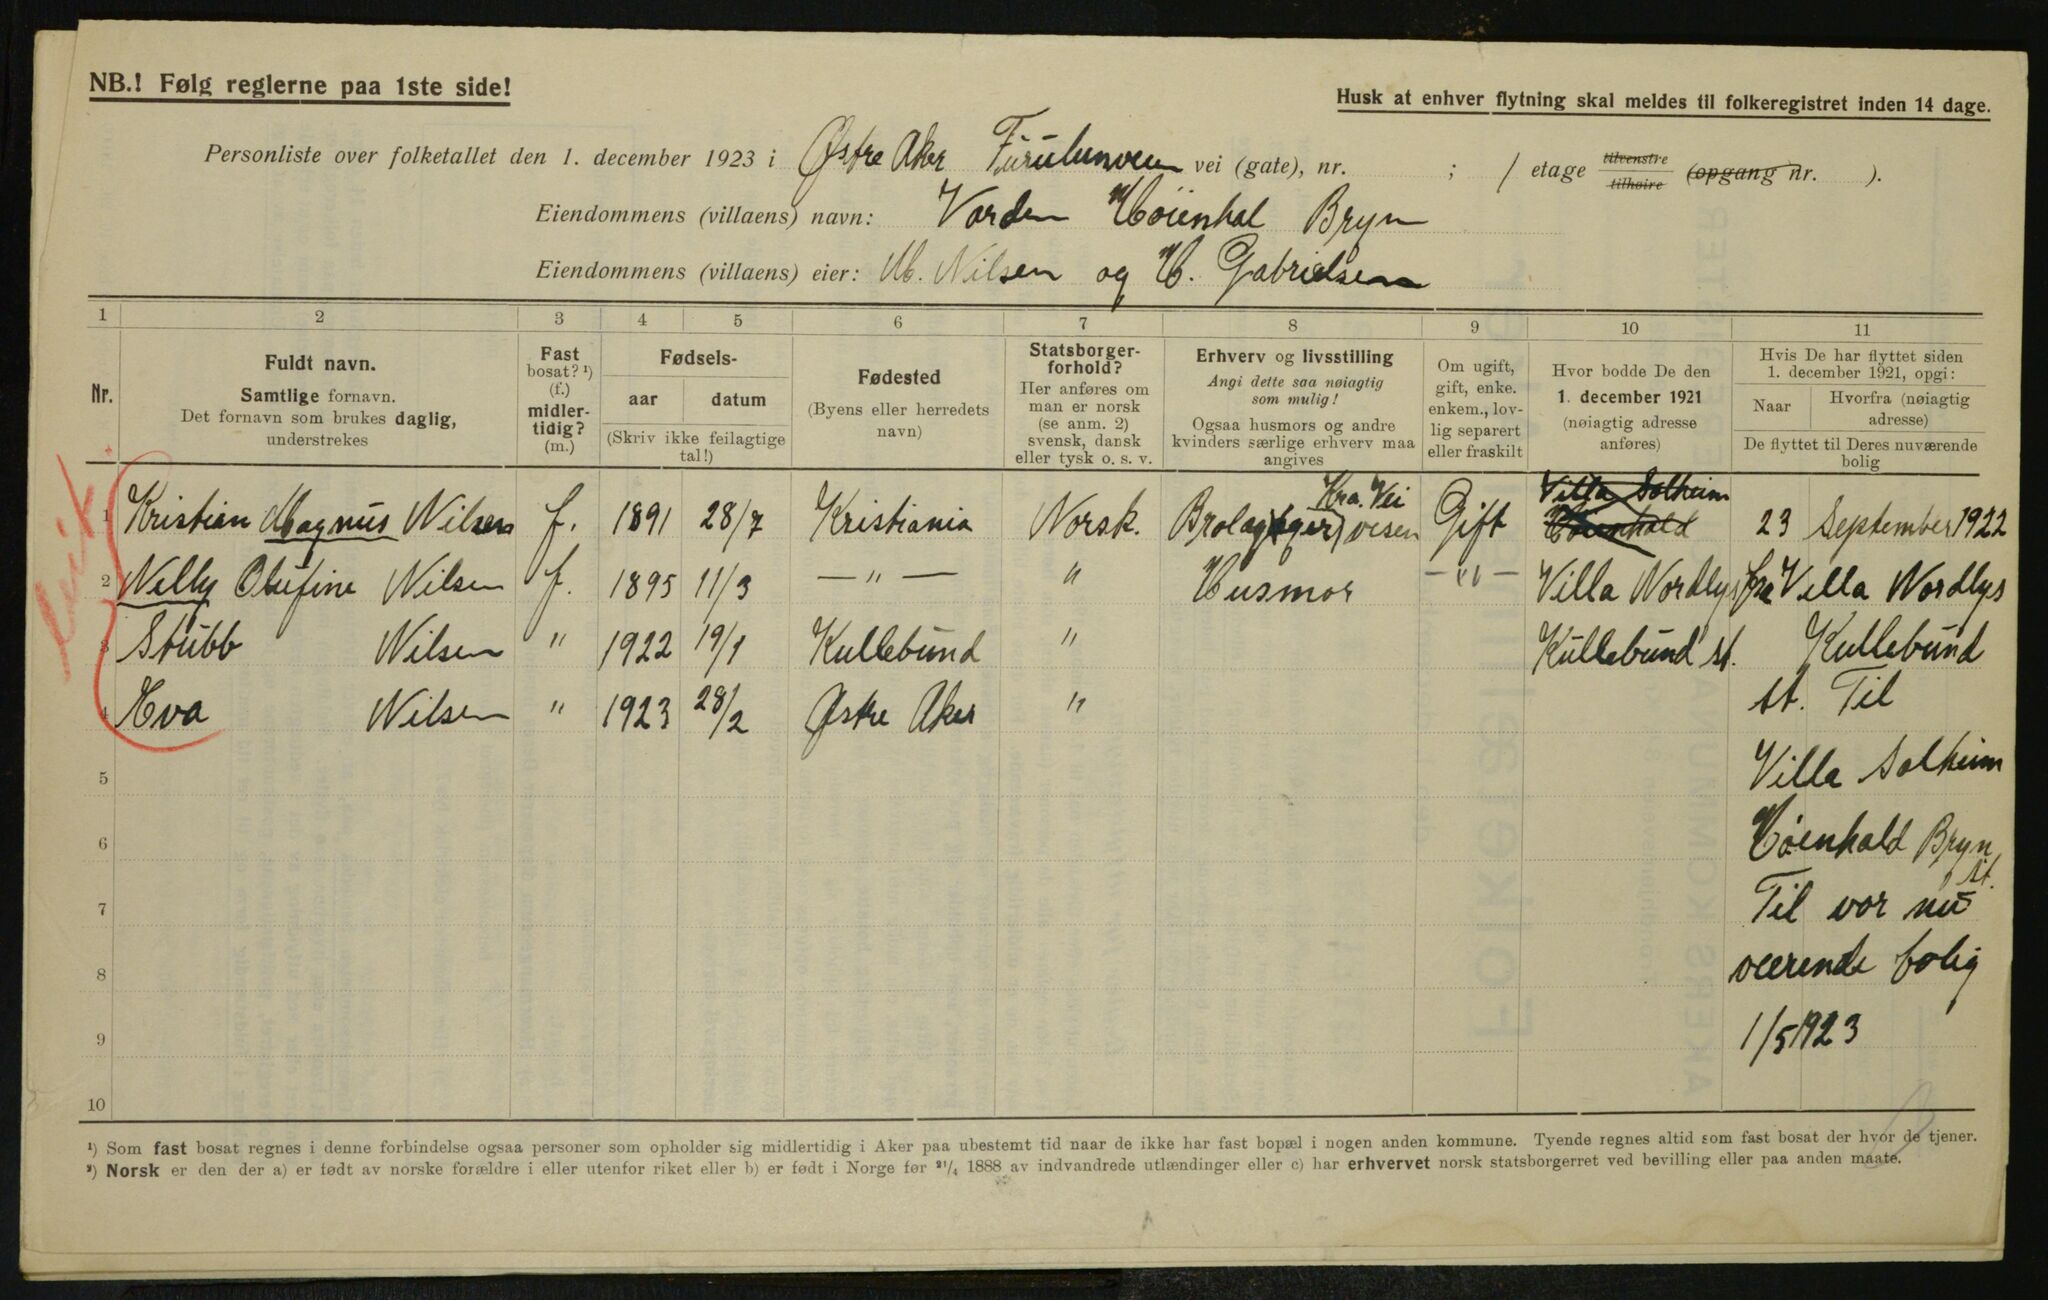 NB.! Følg reglerne paa 1ste side!
Husk at enhver flytning skal meldes til folkeregistret inden 14 dage.
Personliste over folketallet den 1. december 1923 i Østre Aker Furulunveien vei (gate), nr. ; / etage tilvenstre tilhøire (opgang nr. ).
Eiendommens (villaens) navn: Varden Høienhal Bryn
Eiendommens (villaens) eier: M. Nilsen og H. Gabrielsen
1 2 3 4 5 6 7 8 9 10 11
Nr.
Fuldt navn.
Samtlige fornavn.
Det fornavn som brukes daglig,
understrekes
Fast
bosat? ¹)
(f.)
midler-
tidig?
(m.)
Fødsels-
aar datum
(Skriv ikke feilagtige
tal!)
Fødested
(Byens eller herredets
navn)
Statsborger-
forhold?
Her anføres om
man er norsk
(se anm. 2)
svensk, dansk
eller tysk o. s. v.
Erhverv og livsstilling
Angi dette saa nøiagtig
som mulig!
Ogsaa husmors og andre
kvinders særlige erhverv maa
angives
Om ugift,
gift, enke.
enkem., lov-
lig separert
eller fraskilt
Hvor bodde De den
1. december 1921
(nøiagtig adresse
anføres)
Hvis De har flyttet siden
1. december 1921, opgi:
Naar
Hvorfra (nøiagtig
adresse)
De flyttet til Deres nuværende
bolig
1 Kristian Magnus Nilsen f. 1891 28/7 Kristiania Norsk. Brolægger Kra. Vei vesen Gift Villa Solheim Høienhald 23 September 1922
2 Nelly Olufine Nilsen f. 1895 11/3 — " — " Husmor — " — Villa Nordlys fra Villa Nordlys
3 Stubb Nilsen " 1922 19/1 Kullebund " Kullebund st. Kullebund
4 Eva Nilsen " 1923 28/2 Østre Aker " st. Til
5 Villa Solheim
6 Høienhald Bryn st.
7 Til vor nu
8 værende bolig
9 1/5 1923
10
¹) Som fast bosat regnes i denne forbindelse ogsaa personer som opholder sig midlertidig i Aker paa ubestemt tid naar de ikke har fast bopæl i nogen anden kommune. Tyende regnes altid som fast bosat der hvor de tjener.
²) Norsk er den der a) er født av norske forældre i eller utenfor riket eller b) er født i Norge før 21/4 1888 av indvandrede utlændinger eller c) har erhvervet norsk statsborgerret ved bevilling eller paa anden maate.